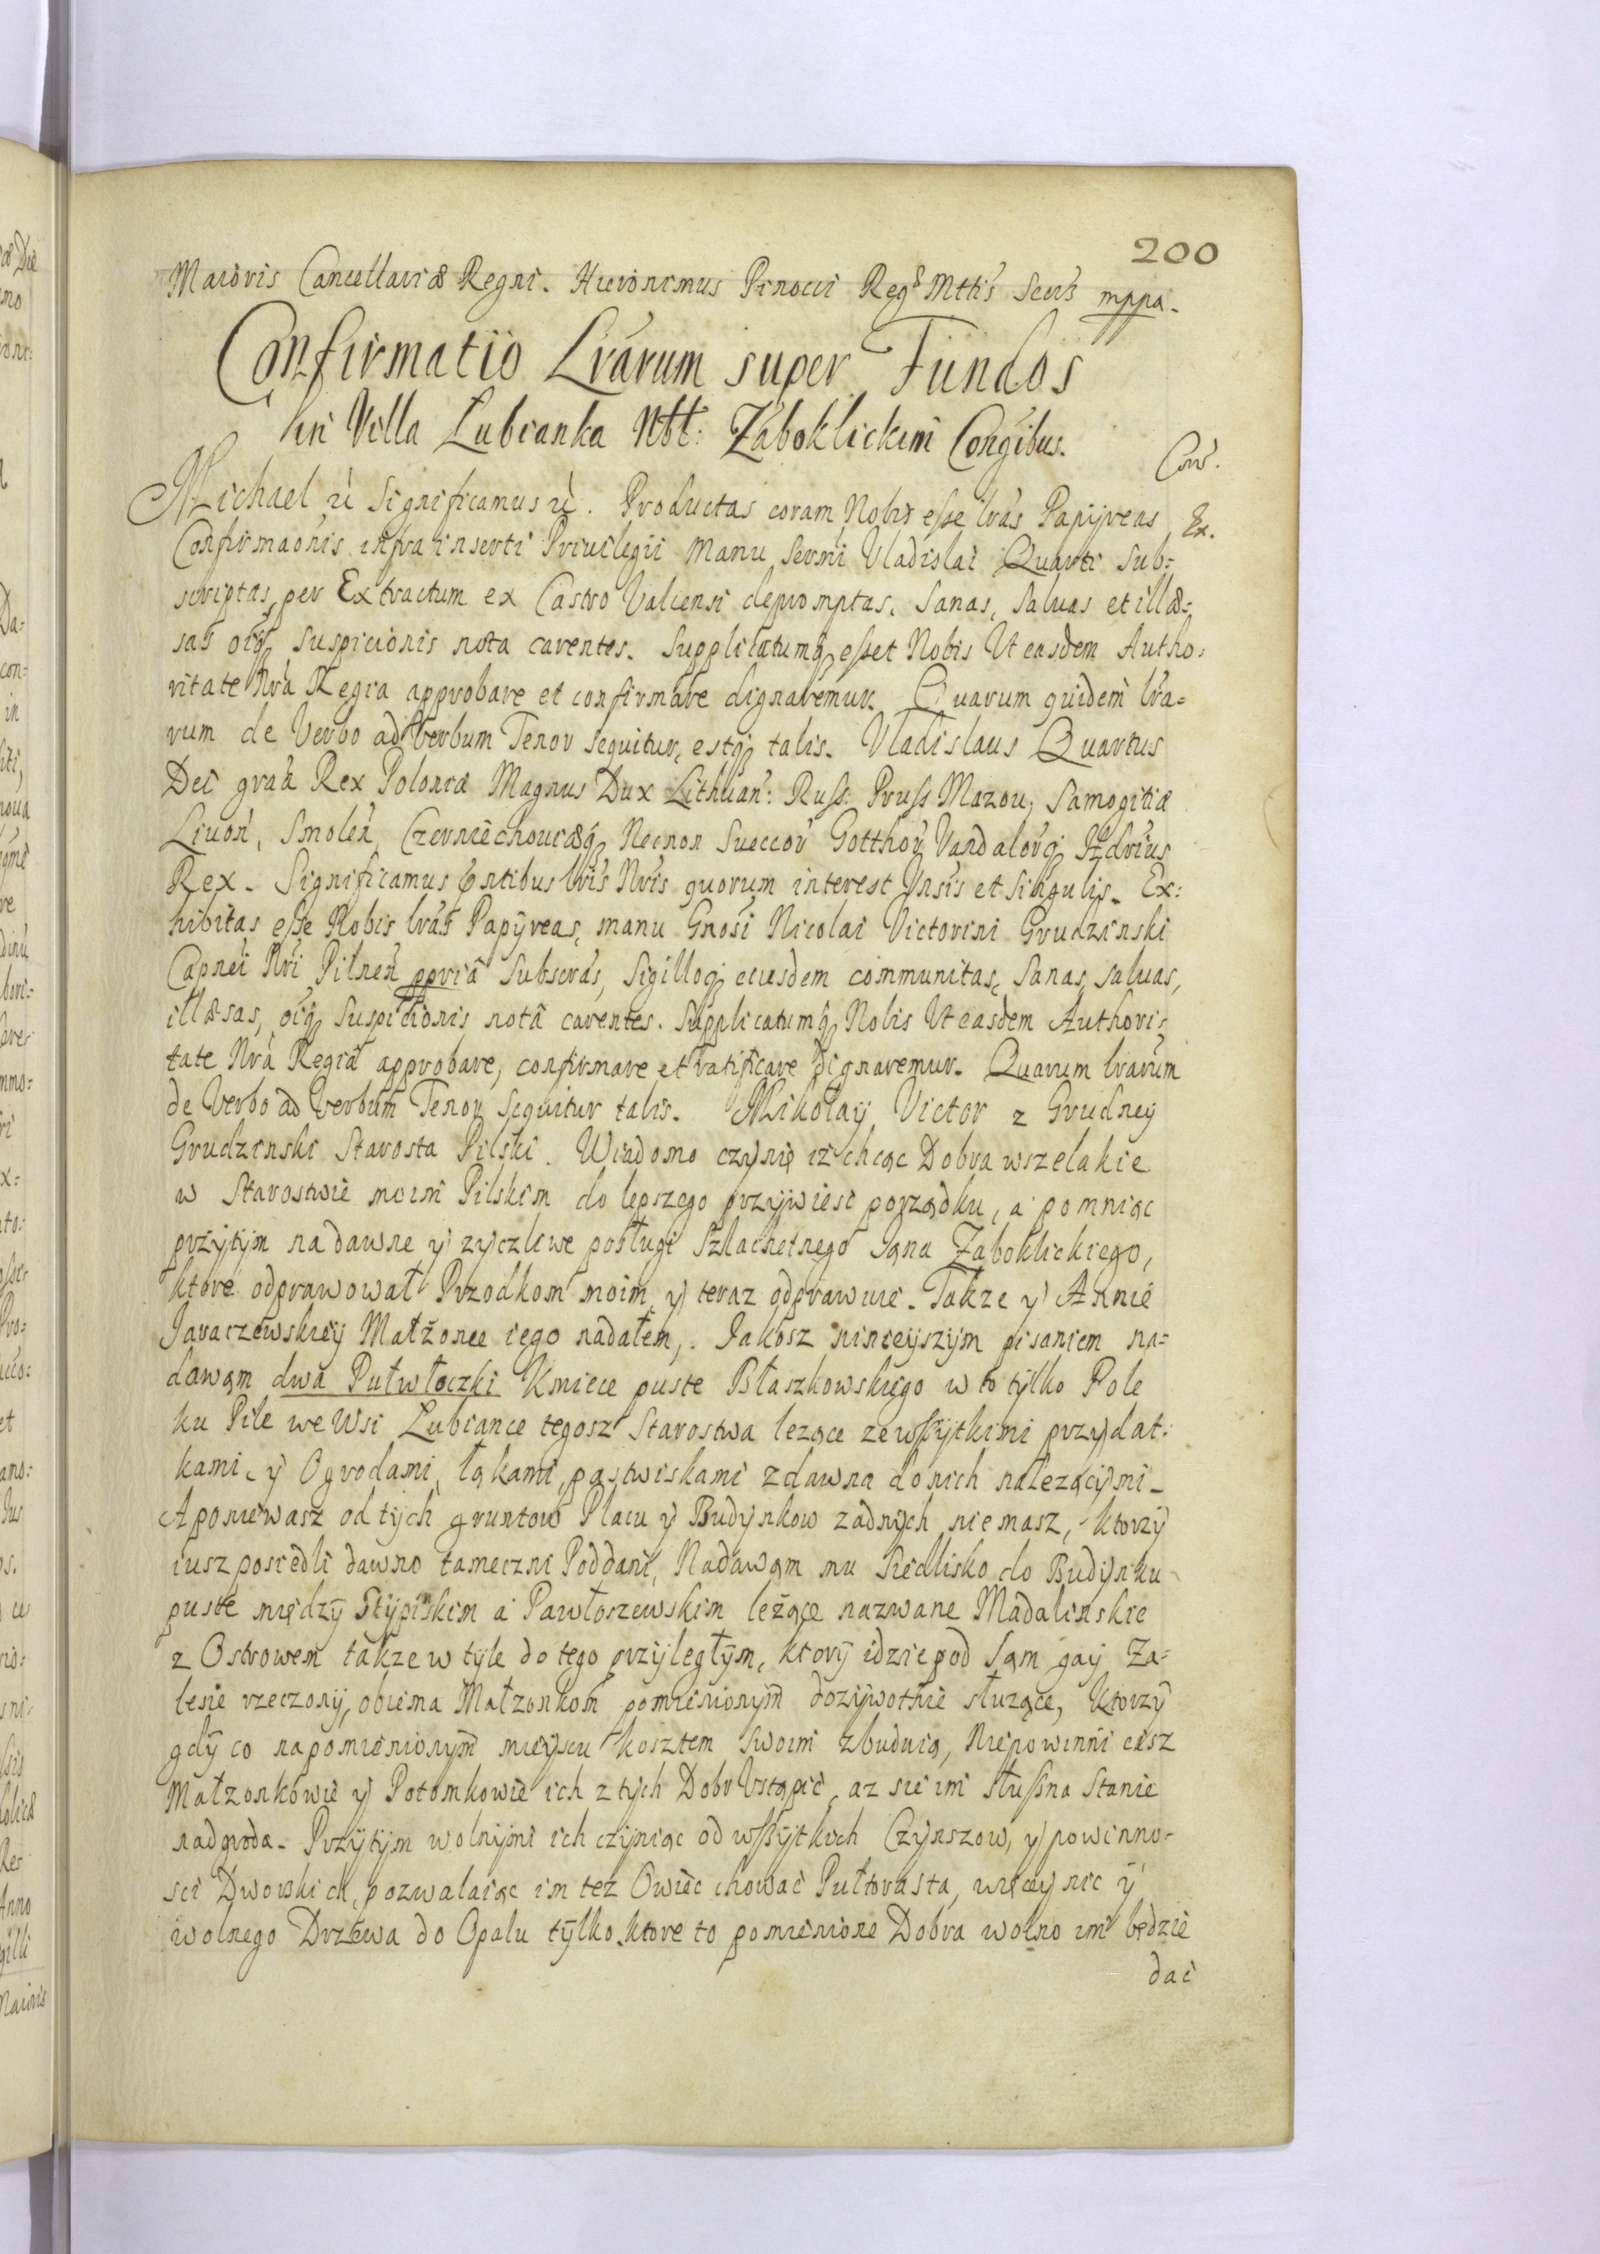 200
Maioris Cancellariæ Regni. Hieronimus Pinocci Regę Mttis Secrs mppa.
Confirmatio Lrarum super Fundos
in Villa Lubianka Nbł: Zaboklickim Congibus.
Con.
Michael &c Significamus &c. Productas coram Nobis esse lras Papyreas
Ex.
Confirmaonis infra inserti Priuilegii manu Sermi Vladislai Quarti sub=
scriptas, per Extractum ex Castro Valcensi depromptas. Sanas, Saluas et illæ=
sas oiq suspicionis nota carentes. Supplicatumq esset Nobis Ut easdem Autho=
ritate Nra Regia approbare et confirmare dignaremur. Quarum quidem lra=
rum de Verbo ad verbum Tenor sequitur, estq talis. Vladislaus Quartus
Dei graa Rex Poloniæ Magnus Dux Lithuan: Russ: Pruss Mazou, Samogitiæ
Liuon, Smolen, Czerniechouiæq Necnon Sueccor Gotthor Vandalorq Hædrius
Rex. Significamus pntibus lris Nris quorum interest Vnsis et singulis. Ex=
hibitas esse Nobis lras Papyreas, manu Gnosi Nicolai Victorini Grudzinski
Capnei Nri Pilnen ppria Subscras, Sigilloq eiusdem communitas, Sanas, saluas,
illæsas, oiq suspicionis notâ carentes. Supplicatumq Nobis Ut easdem Authori=
tate Nra Regia approbare, confirmare et ratificare dignaremur. Quarum lrarum
de Verbo ad verbum Tenor sequitur talis. Mikołay Victor z Grudney
Grudzinski Starosta Pilski. Wiadomo czynię iż chcąc Dobra wszelakie
w Starostwie moim Pilskim do lepszego przywiesc porządku, a pomniąc
przytym na dawne y zyczliwe posługi Szlachetnego Jana Zaboklickiego,
ktore odprawował Przodkom moim, y teraz odprawuie. Takze y Annie
Jaraczewskiey Małżonce iego nadałem, Jakosz ninieyszym pisaniem na=
dawam dwa Pułwłoczki Kmiece puste Błaszkowskiego w to tylko Pole
ku Pile we Wsi Lubiance tegosz Starostwa lezące ze wszytkimi przydat=
kami, y Ogrodami, łąkami, pastwiskami zdawna do nich nalezącymi.
A poniewasz od tych gruntow Placu y Budynkow zadnych nie masz, ktorzy
iusz posiedli dawno tameczni Poddani, Nadawam mu siedlisko do Budynku
puste między Stypiskim a Pawłoszewskim leżące nazwane Madalinskie
z Ostrowem takze w tyle do tego przyległym, ktory idzie pod sam gay Za=
lesie rzeczony, obiema Małzonkom pomienionym dozywotnie służące, Ktorzy
gdy co na pomienionym mieyscu kosztem swoim zbuduią, Niepowinni ciesz
Małzonkowie y Potomkowie ich z tych Dobr Ustąpic, az sie im słuszna stanie
nadgroda. Przytym wolnymi ich czyniąc od wszytkich Czynszow, y powinno=
sci Dworskich, pozwalaiąc im tez Owiec chować Pułtorasta, więcey nic y
wolnego Drzewa do Opalu tylko. ktore to pomienione Dobra wolno im będzie
dac